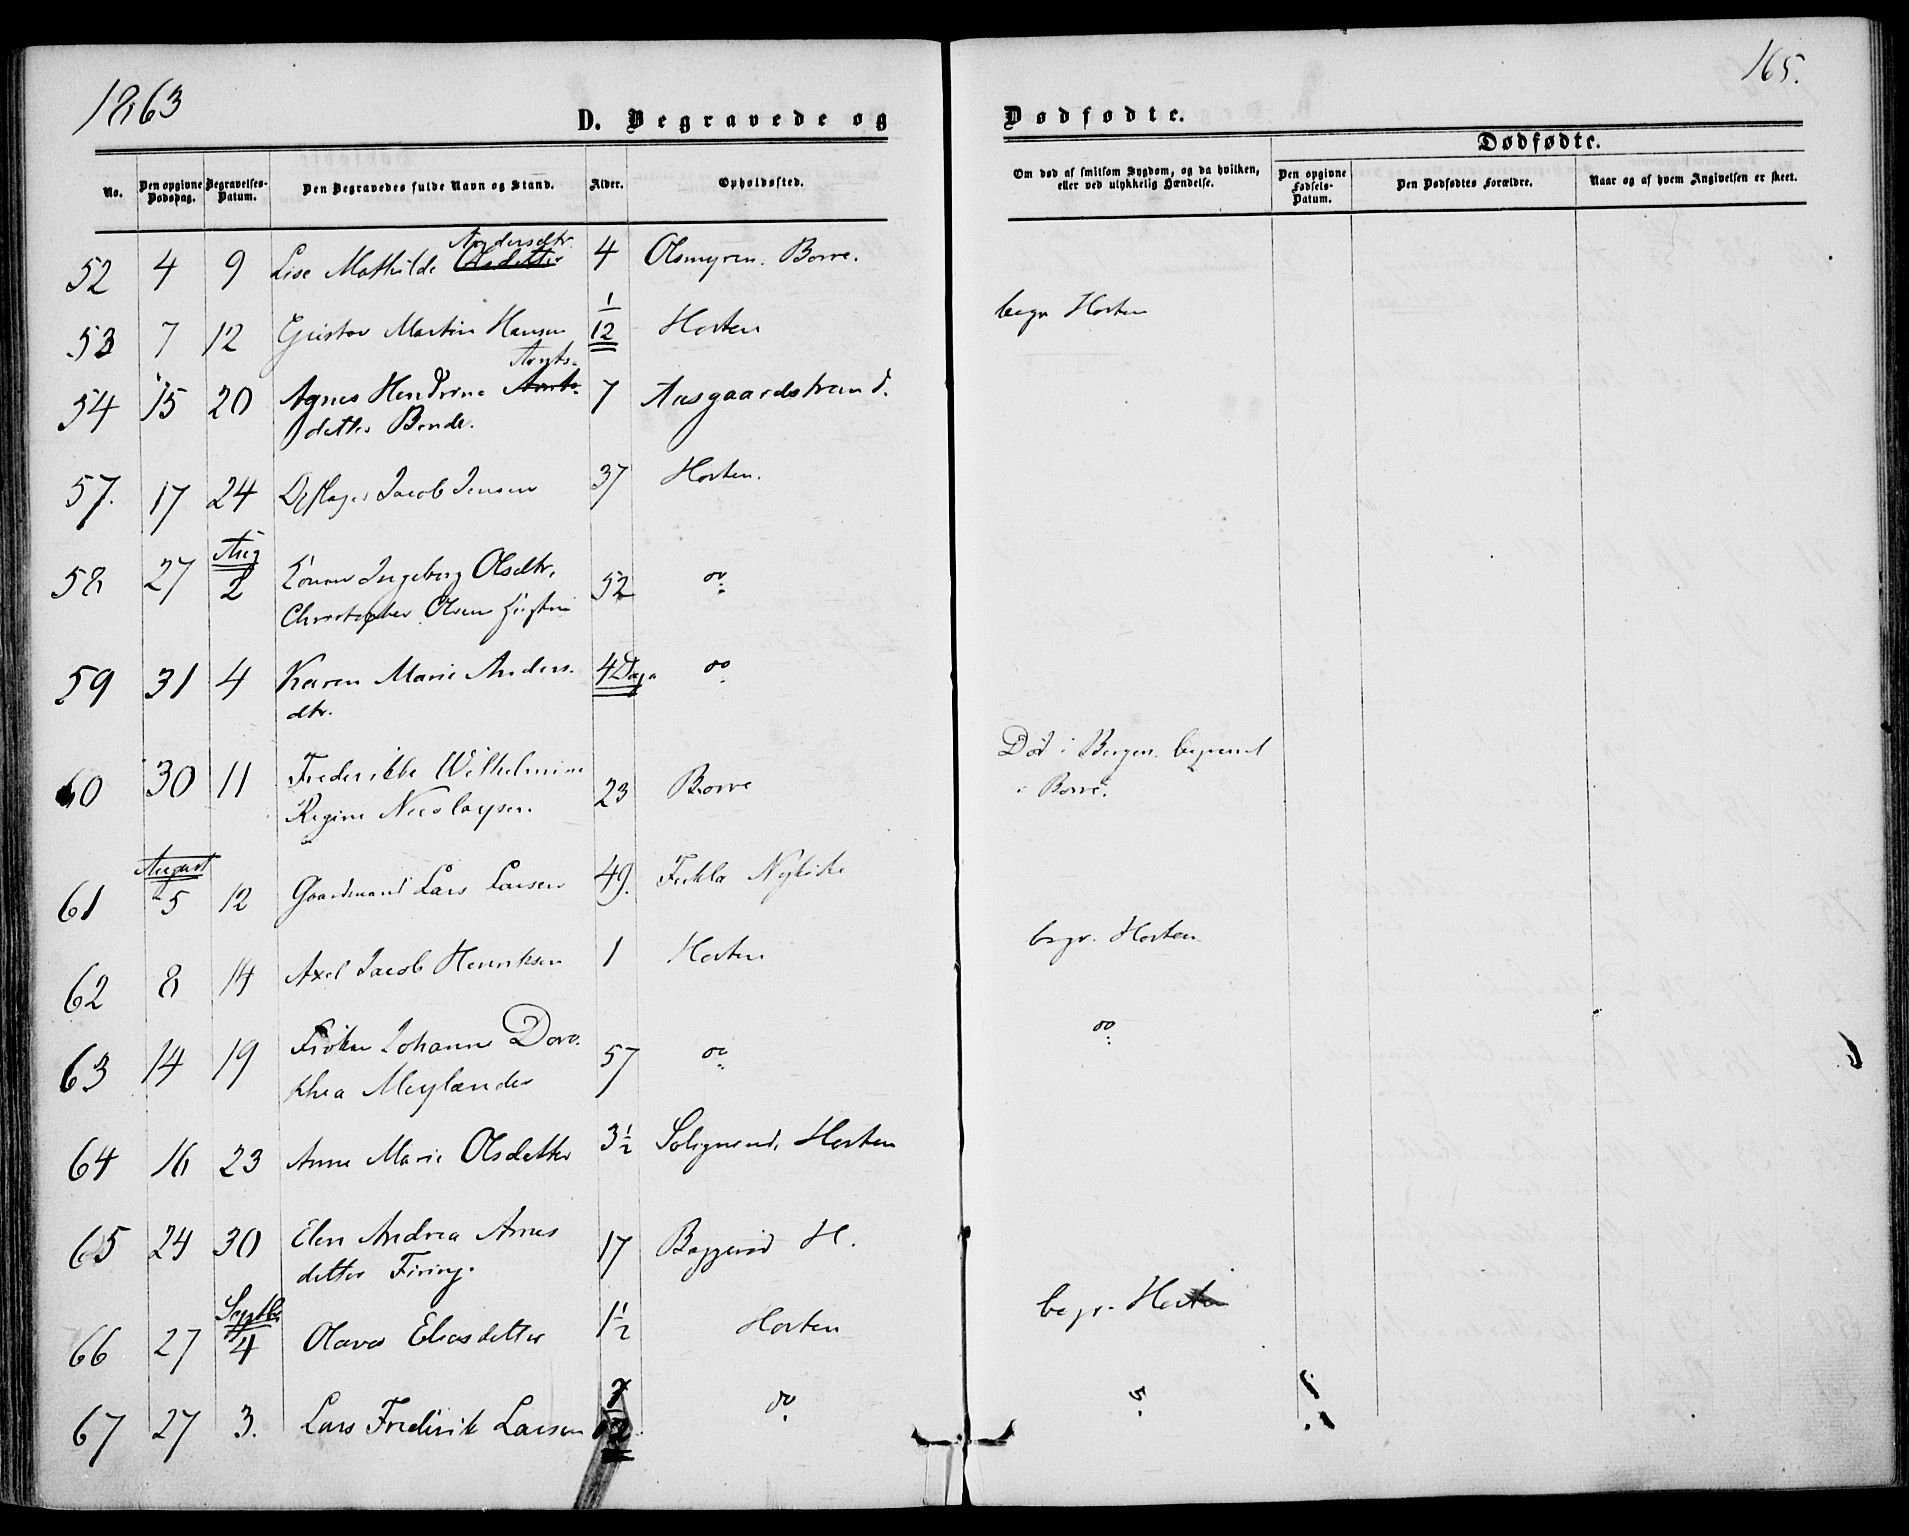 1863
165.
D. Begravede og Dødfødte.
Dødfødte.
No.
Den opgivne Dødsdag.
Begravelses-Datum.
Den Begravedes fulde Navn og Stand.
Alder.
Opholdssted.
Om død af smitsom Sygdom, og da hvilken, eller ved ulykkelig Hændelse.
Den opgivne Fødsels-Datum.
Den Dødfødtes Forældre.
Naar og af hvem Angivelsen er skeet.
Andersdtr.
52 4 9 Lise Mathilde Olsdatter 4 Olsmyren. Borre.
53 7 12 Gustav Martin Hansen 1/12 Horten begr Horten
54 15 20 Agnes Hendrine 7 Aasgaardstrand.
datter Bende.
57. 17 24 Jacob Jensen 37 Horten.
Aug
58 27 2 Ingeborg Olsdtr. 52 do
Christopher Olsen
59 31 4 Karen Marie Anders- 4 Dage do
dtr.
60 30 11 Frederikke Wilhelmine 23 Borre Død i Bergen. begravet
Regine Nicolaysen. i Borre.
August
61 5 12 Gaardmand Lars Larsen 49.
62 8 14 Axel Jacob Henriksen 1 Horten begr. Horten
63 14 19 Frøken Johanne Doro- 57 do do
thea Meylænder
64 16 23 Anne Marie Olsdatter 3 1/2 Horten
65 24 30 Elen Andrea Arnes 17 Baggerød H.
datter Firing.
Septbr
66 27 4 Olava Eliasdatter 1 1/2 Horten begr. Horten
67 27 3. Lars Fredrik Larsen 7/12 do